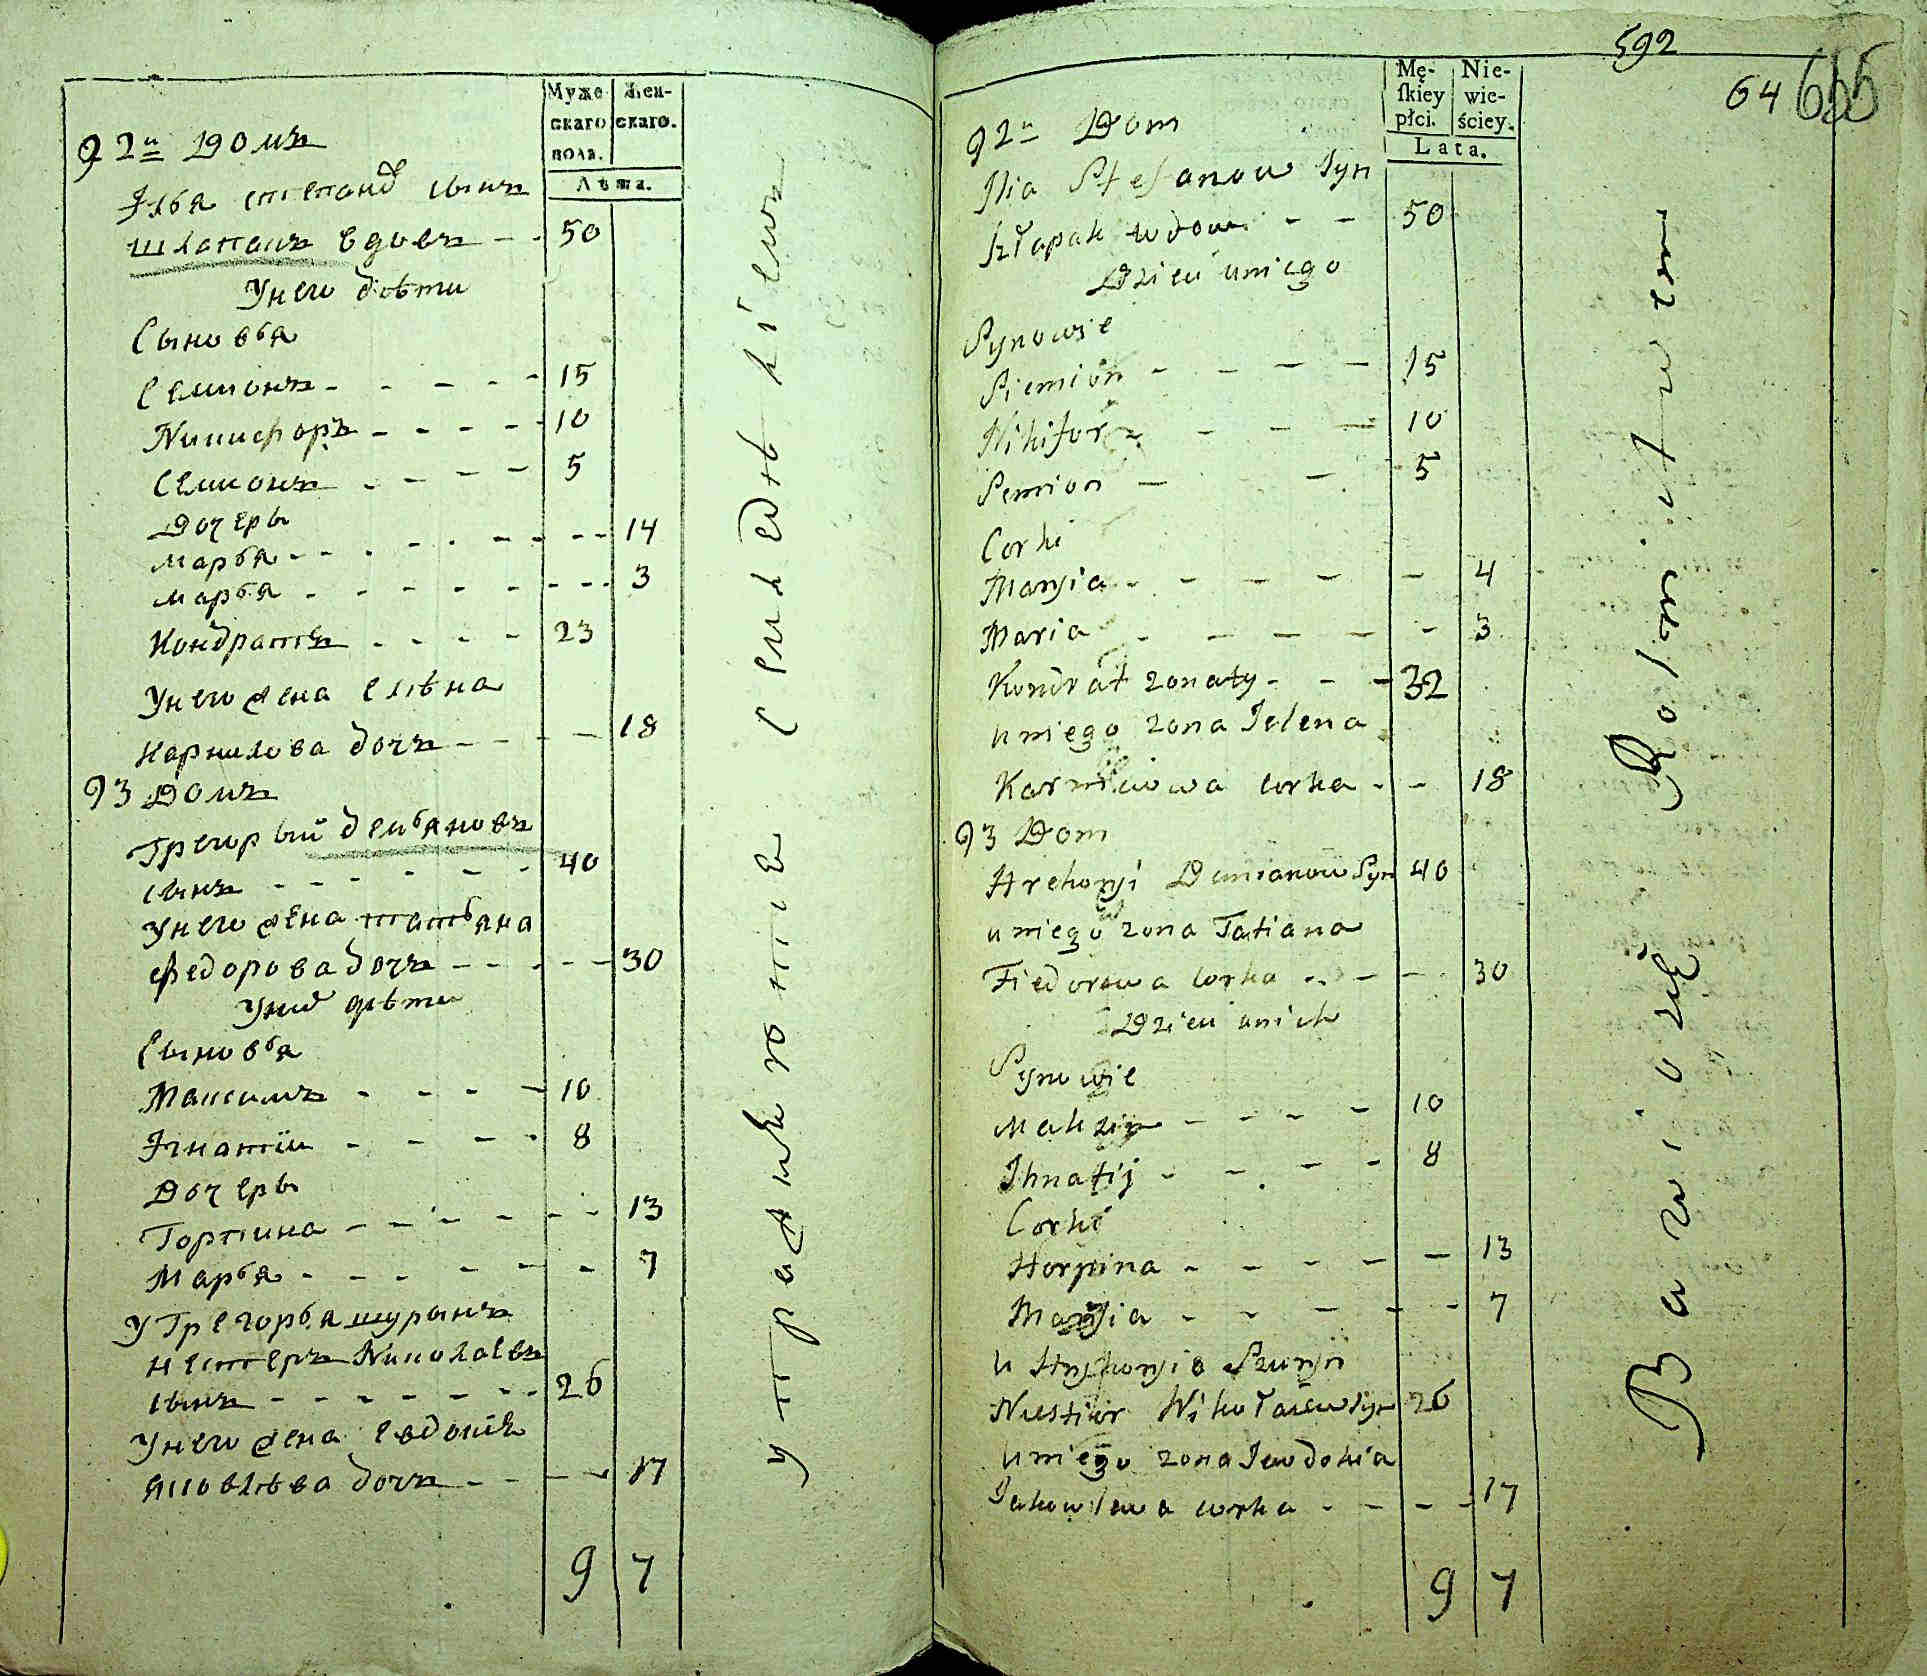 Муже
скаго
пола.
Жен-
скаго.
Лѣта.
92й Домъ
Илья степанов сынъ
шлапакъ вдовъ 50
У него дѣти
Сыновья
Семионъ 15
Никифоръ 10
Семионъ 5
Дочеры
марья 14
марья 3
Кондратъ 23
У него жена елѣна
карнилова дочъ 18
93 Домъ
Грегорый демьяновъ
сынъ 40
У него жена татьяна
федорова дочъ 30
У них дѣти
Сыновья
Максимъ 10
Игнатїи 8
Дочеры
Горпина 13
Марья 7
У Грегорья шурынъ
нестеръ Николаевъ
сынъ 26
У него жена евдокія
яковлѣва дочъ 17
9 7
592
64 615
Mę-
ſkiey
płci.
Nie-
wie-
ściey.
Lata.
92й Dom
Ilia Stefanow Syn
szłapak wdow 50
Dzieci uniego
Synowie
Siemion 15
Nikifor 10
Semion 5
Corki
Maryia 4
Maria 3
Kondrat zonaty 32
uniego zona Jelena
Karniłowa corka 18
93 Dom
Hrehoryi Demianow Syn 40
uniego zona Tatiana
Fiedorowa corka 30
Dzieci unich
Synowie
Makzim 10
Ihnatij 8
Corki
Horpina 13
Maryia 7
u Hryhoryia Szuryn
Nestior Nikołaiew Syn 26
uniego zona Jewdokia
Jakowlewa corka 17
9 7